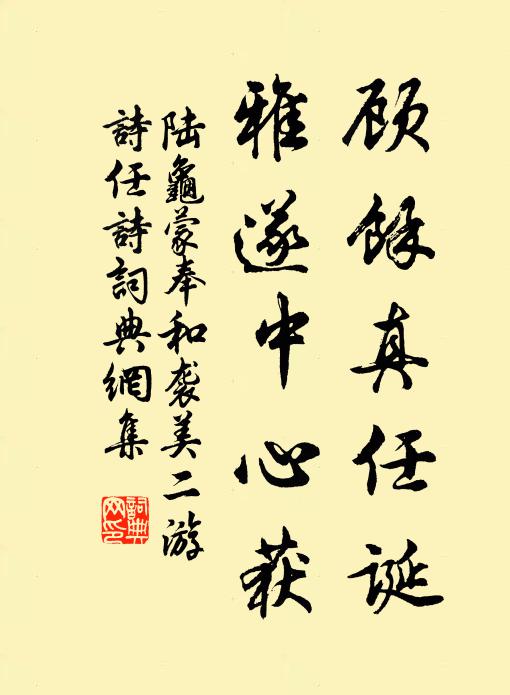 顾馀真任诞
雅遂中心获
陆龜蒙奉和袭美二游
詩任詩詞典網集
詞典
网印